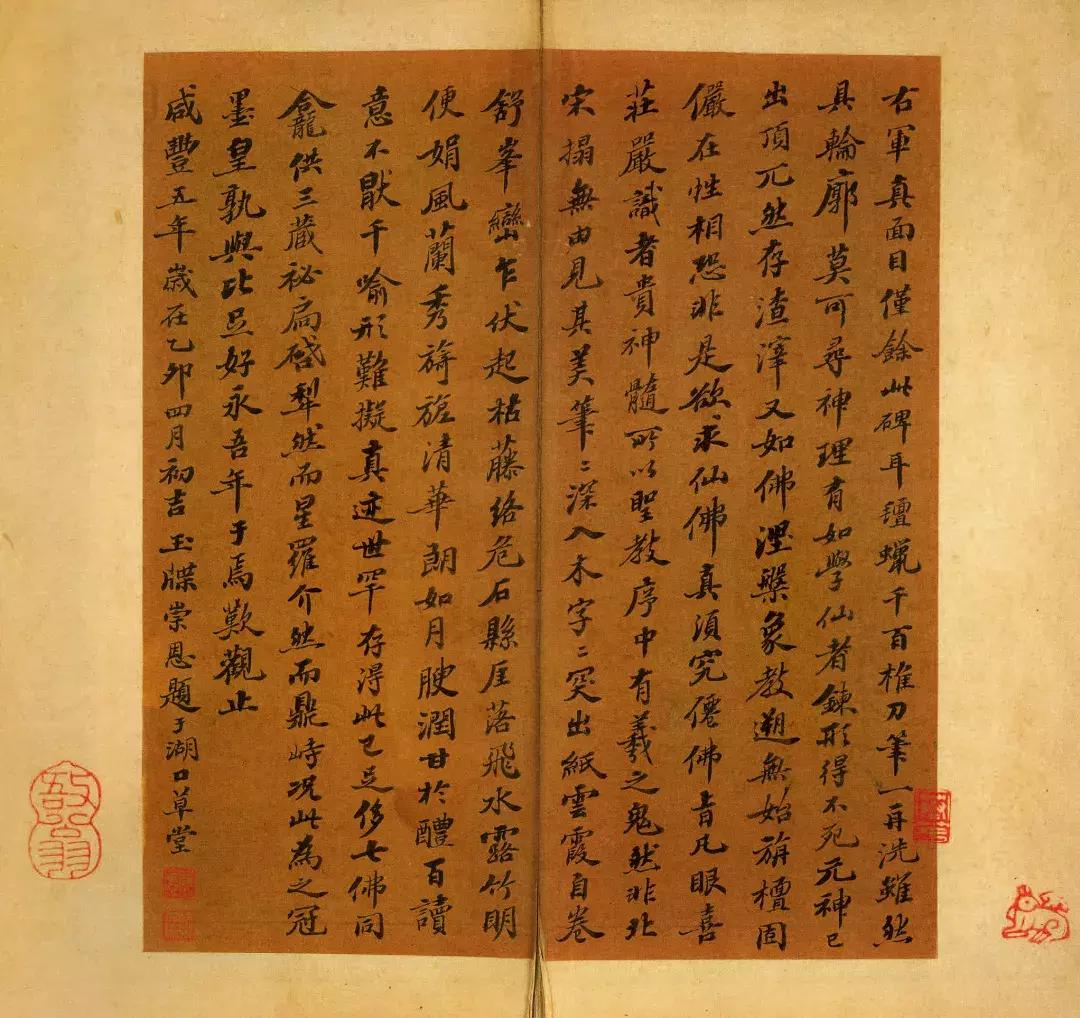 右軍真面目僅餘此碑耳氈蠟千百椎刀筆一再洗雖然
具輪廓莫可尋神理有如學仙者鍊形得不死元神已
出頂兀然存渣滓又如佛涅槃象教遡無始旃檀固
儼在性相恐非是欲求仙佛真須究僊佛旨凡眼喜
莊嚴識者貴神髓所以聖教序中有羲之鬼然非北
宋搨無由見其美筆〻深入木字〻突出紙雲霞自卷
舒峯巒乍伏起枯藤絡危石縣厓落飛水露竹明
便娟風蘭秀旖旎清華朗如月腴潤甘於醴百讀
意不猒千喻形難擬真迹世罕存得此已足侈七佛同
龕供三藏祕扃啓犁然而星羅介然而鼎峙況此為之冠
墨皇孰與比旦好永吾年于焉歎觀止
咸豐五年歲在乙卯四月初吉玉牒崇恩題于湖口草堂